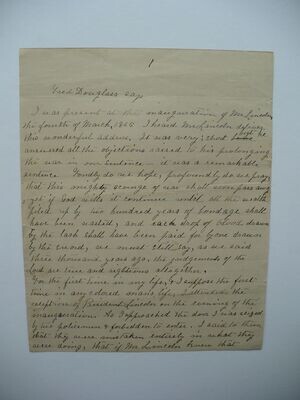 1
Fred Douglass says
I was present at the inauguration of Mr Lincoln,
the fourth of March, 1865. I heard Mr Lincoln deliver
this wonderful address. It was very short but he
answered all the objections raised to his prolonging
the war in one sentence – it was a remarkable
sentence. Fondly do we hope, profoundly do we pray,
that this mighty scourge of war shall soon pass away
yet if God wills it continue until all the wealth
piled up by two hundred years of bondage shall
have been wasted, and each drop of blood drawn
by the lash shall have been paid for by one drawn
by the sword, we must still say, as was said
three thousand years ago, the judgements of the
Lord are true and righteous altogether.
For the first time in my life, & I suppose the first
time in any colored mans life, I attended the
reception of President Lincoln on the evening of the
inauguration. As I approached the door I was seized
by two policemen & forbidden to enter. I said to them
that they were mistaken entirely in what they
were doing, that if Mr Lincoln knew that